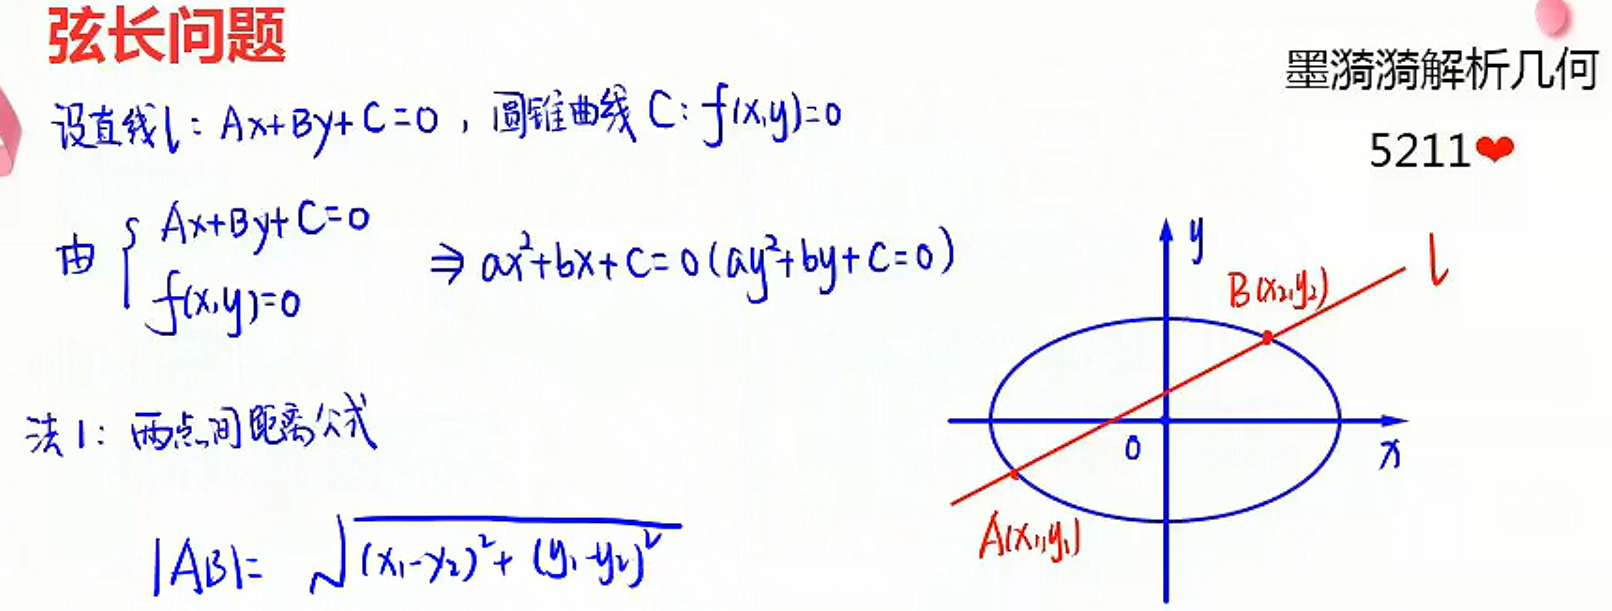 弦长问题
墨漪漪解析几何
5211❤
设直线l：Ax+By+C=0，圆锥曲线C：f(x,y)=0
由 { Ax+By+C=0
f(x,y)=0
⇒ ax²+bx+c=0(ay²+by+c=0)
法1：两点间距离公式
|AB|= √((x₁-x₂)²+(y₁-y₂)²)
y
l
B(x₂,y₂)
O
x
A(x₁,y₁)